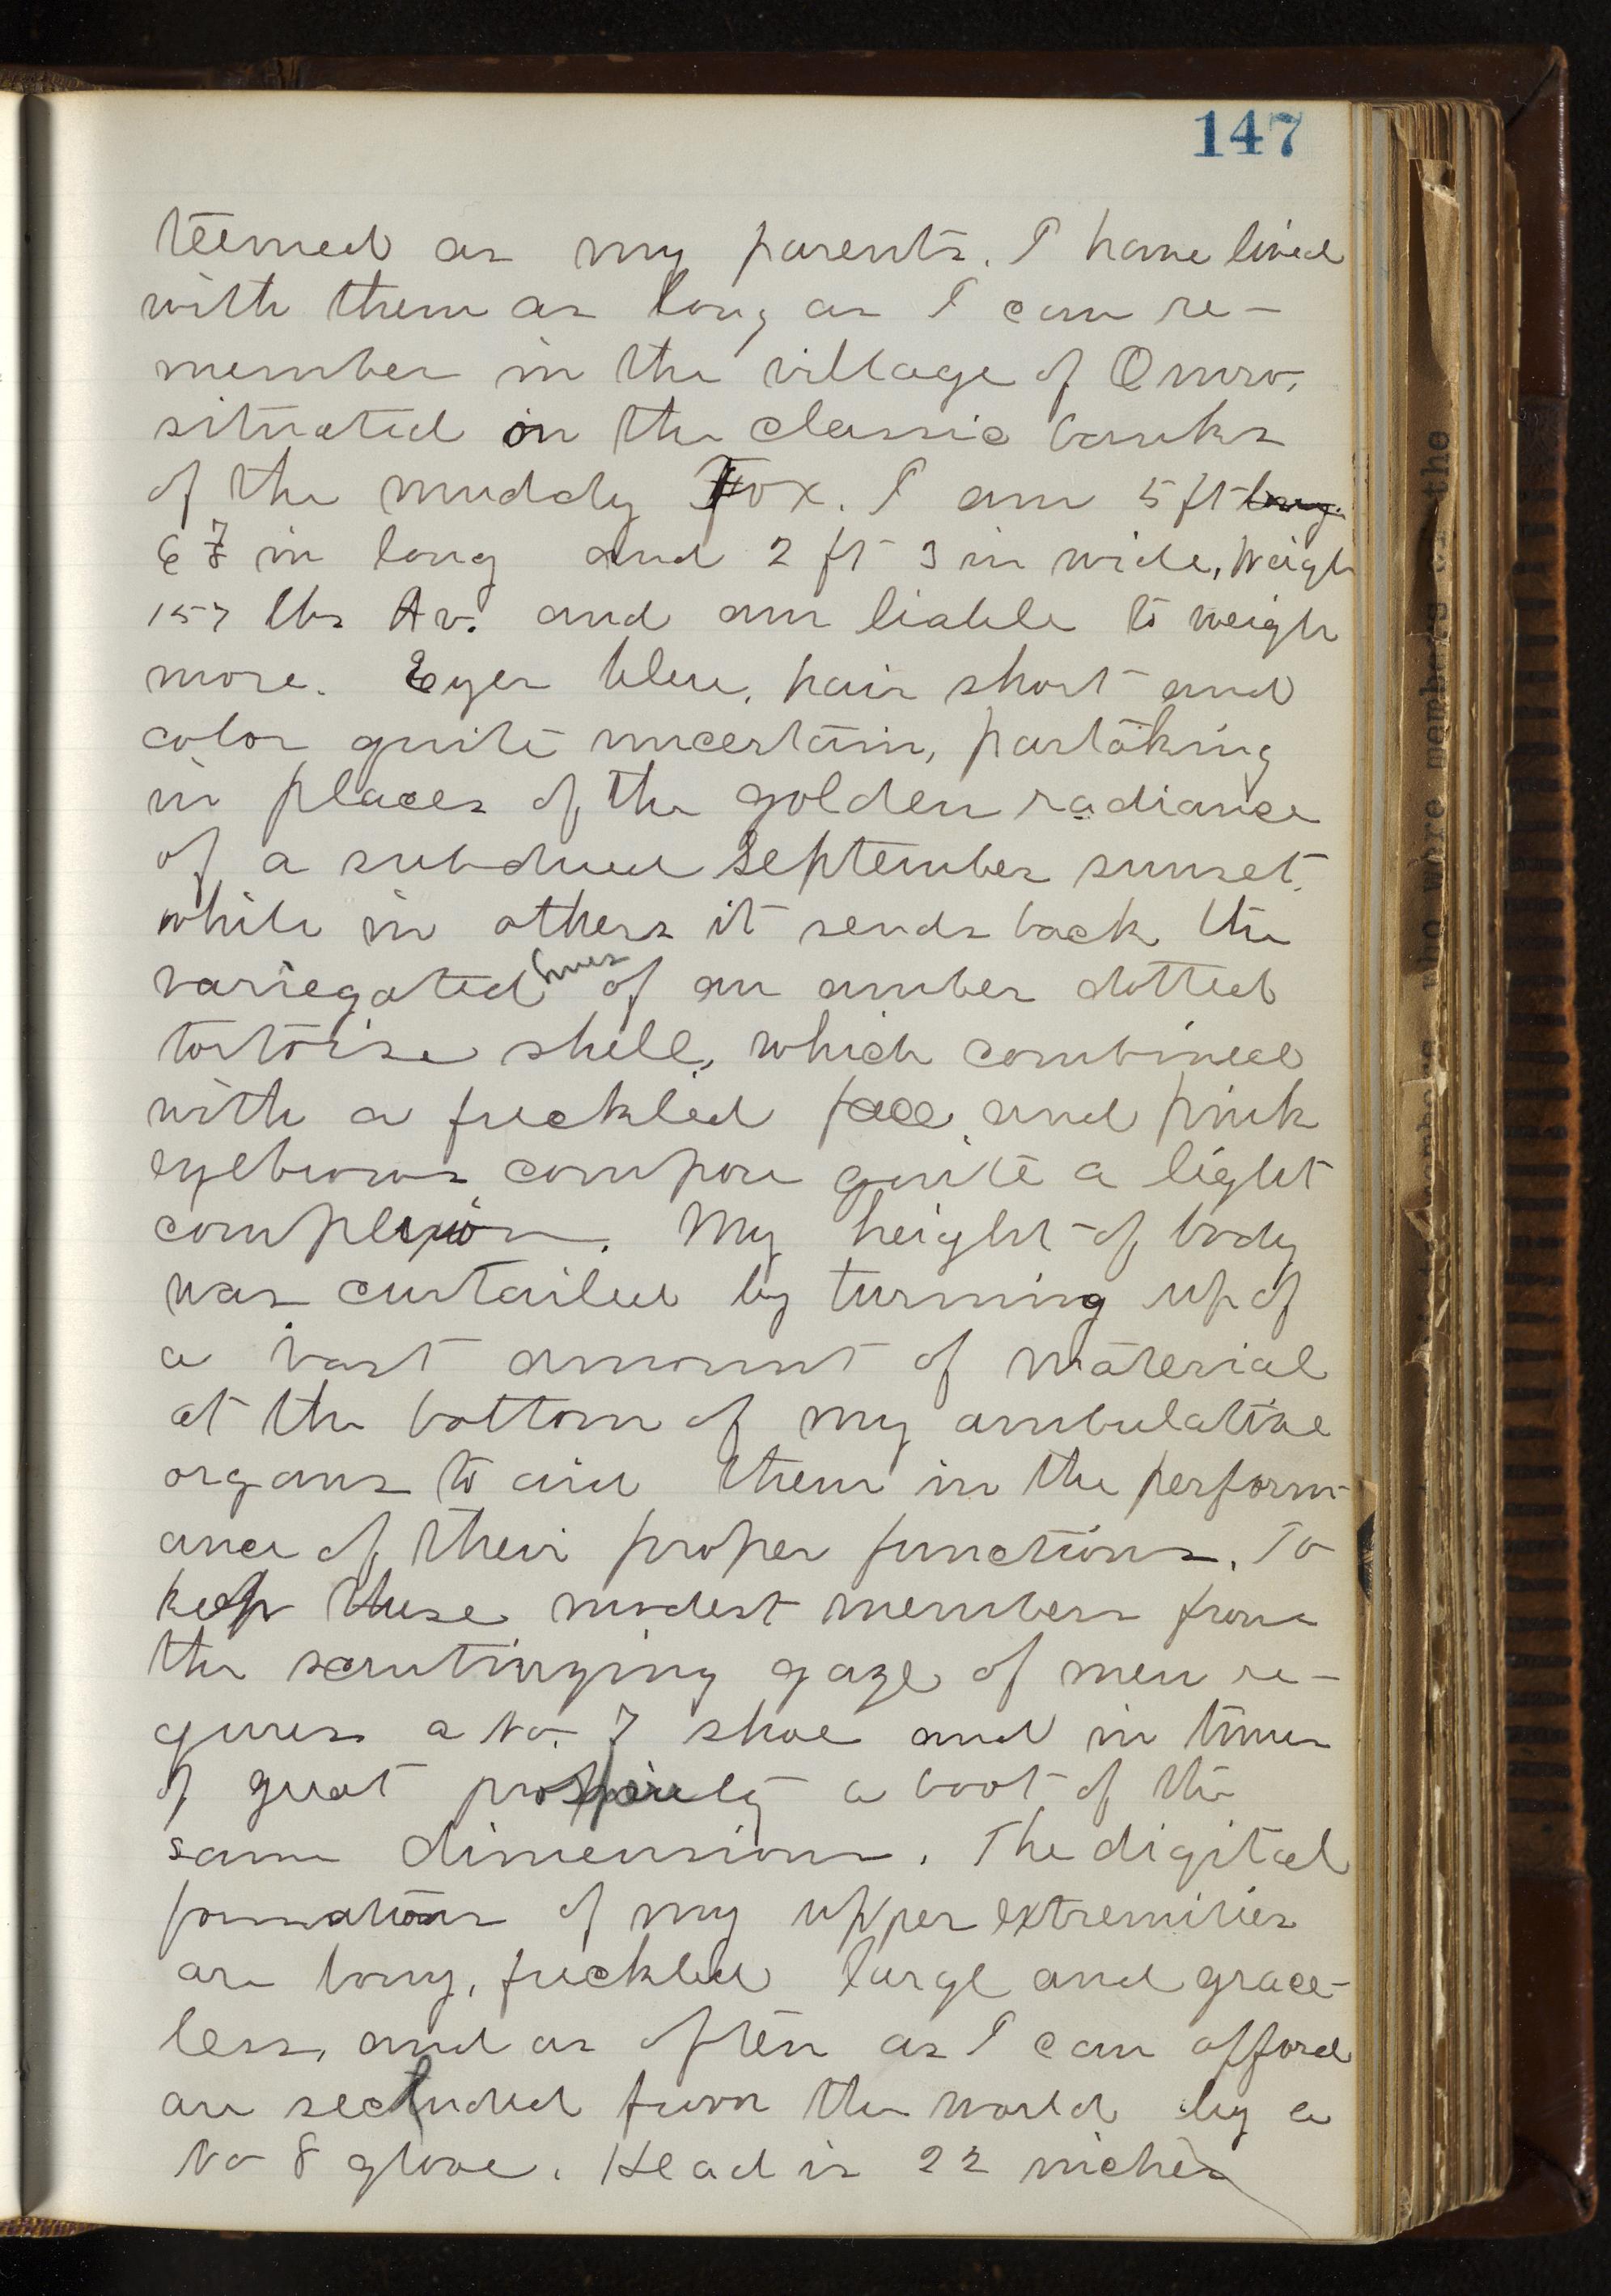 147
teemed as my parents. I have lived
with them as long as I can re-
member in the village of Omro,
situated on the classic banks
of the muddy Fox. I am 5 ft long
6 7/8 in long and 2 ft 3 in wide, Weigh
157 lbs Av. and am liable to weigh
more. Eyes blue, hair short and
color quite uncertain, partaking
in places of the golden radiance
of a subdued September sunset,
while in others it sends back the
variegated hues of an amber dotted
tortoise shell, which combined
with a freckled face and pink
eyebrows compose quite a light
complexion. My height of body
was curtailed by turning up of
a vast amount of material
at the bottom of my ambulative
organs to aid them in the perform-
ance of their proper functions. To
keep these modest members from
the scrutinzing gaze of men re-
quires a No. 7 shoe and in times
of great prosperity a boot of the
same dimensions. The digital
formations of my upper extremities
are bony, freckled large and grace-
less, and as often as I can afford
are secluded from the world by a
No 8 glove. Head is 22 inches
who were members of the